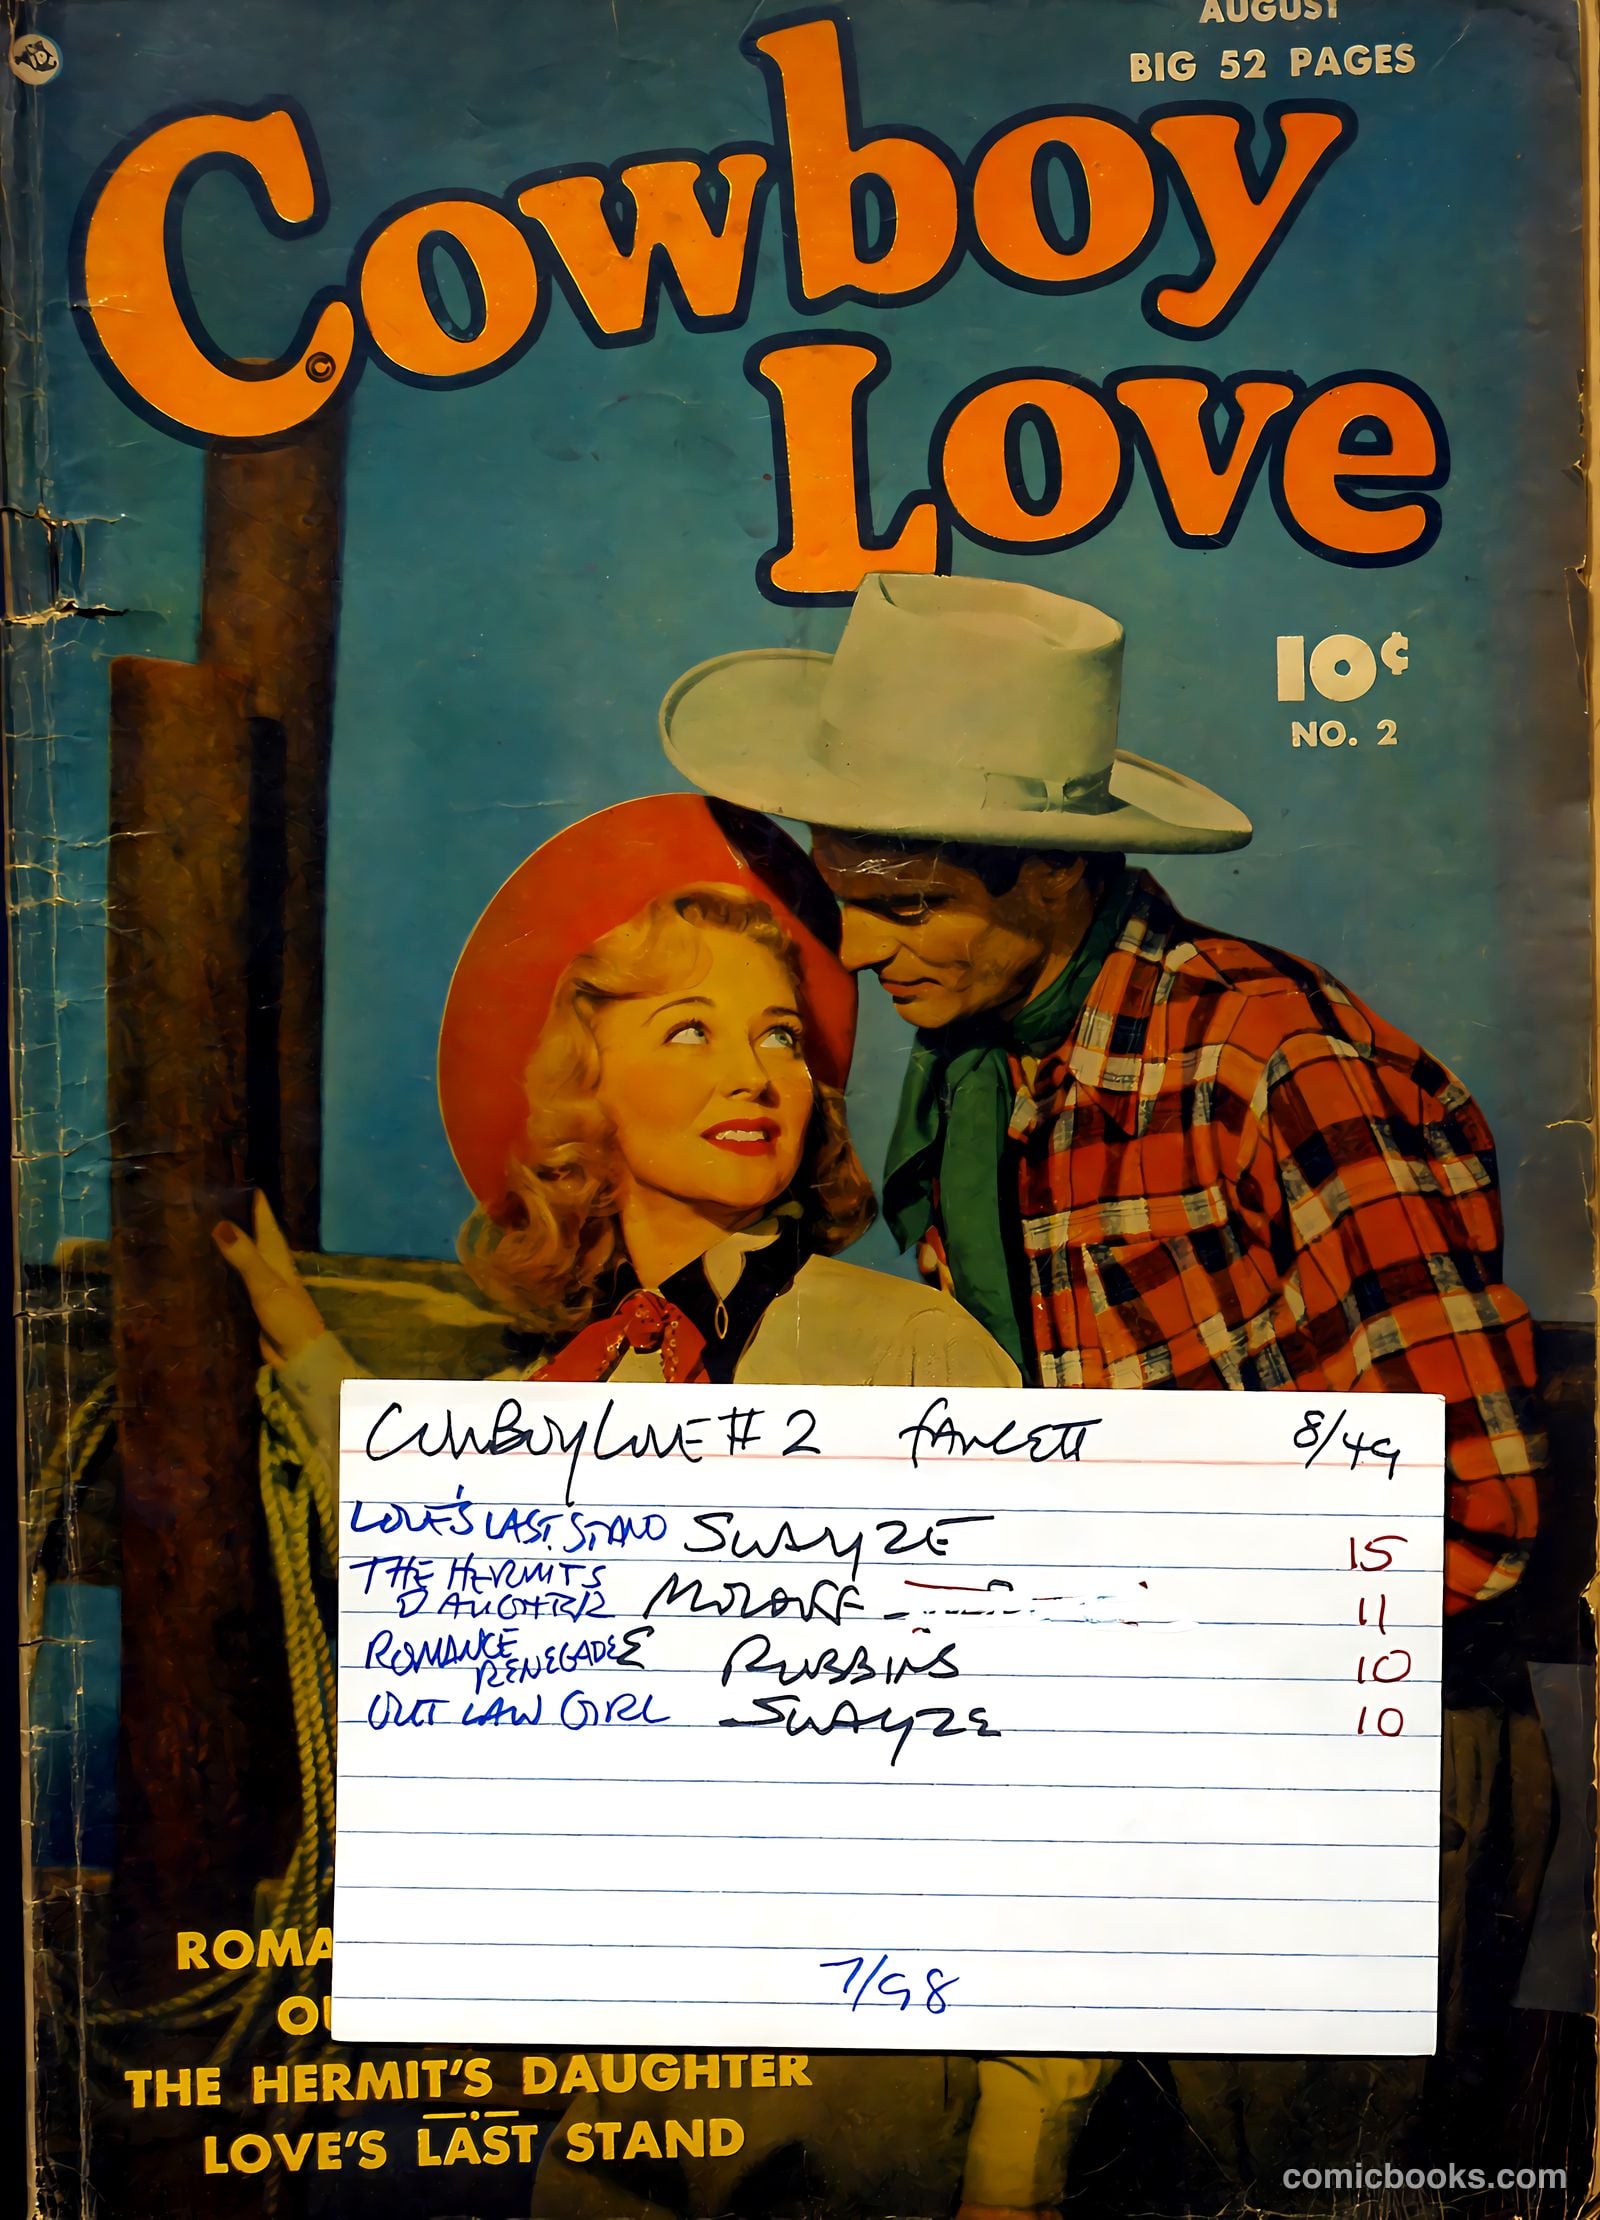 AUGUST
BIG 52 PAGES
Cowboy
Love
10¢
NO. 2
COWBOY LOVE #2 FAWCETT 8/49
LOVE'S LAST STAND SWAYZE 15
THE HERMITS
DAUGHTER 11
ROMANCE
RENEGADE RUBBINS 10
OUTLAW GIRL SWAYZE 10
7/98
ROMA
OU
THE HERMIT'S DAUGHTER
LOVE'S LAST STAND
comicbooks.com